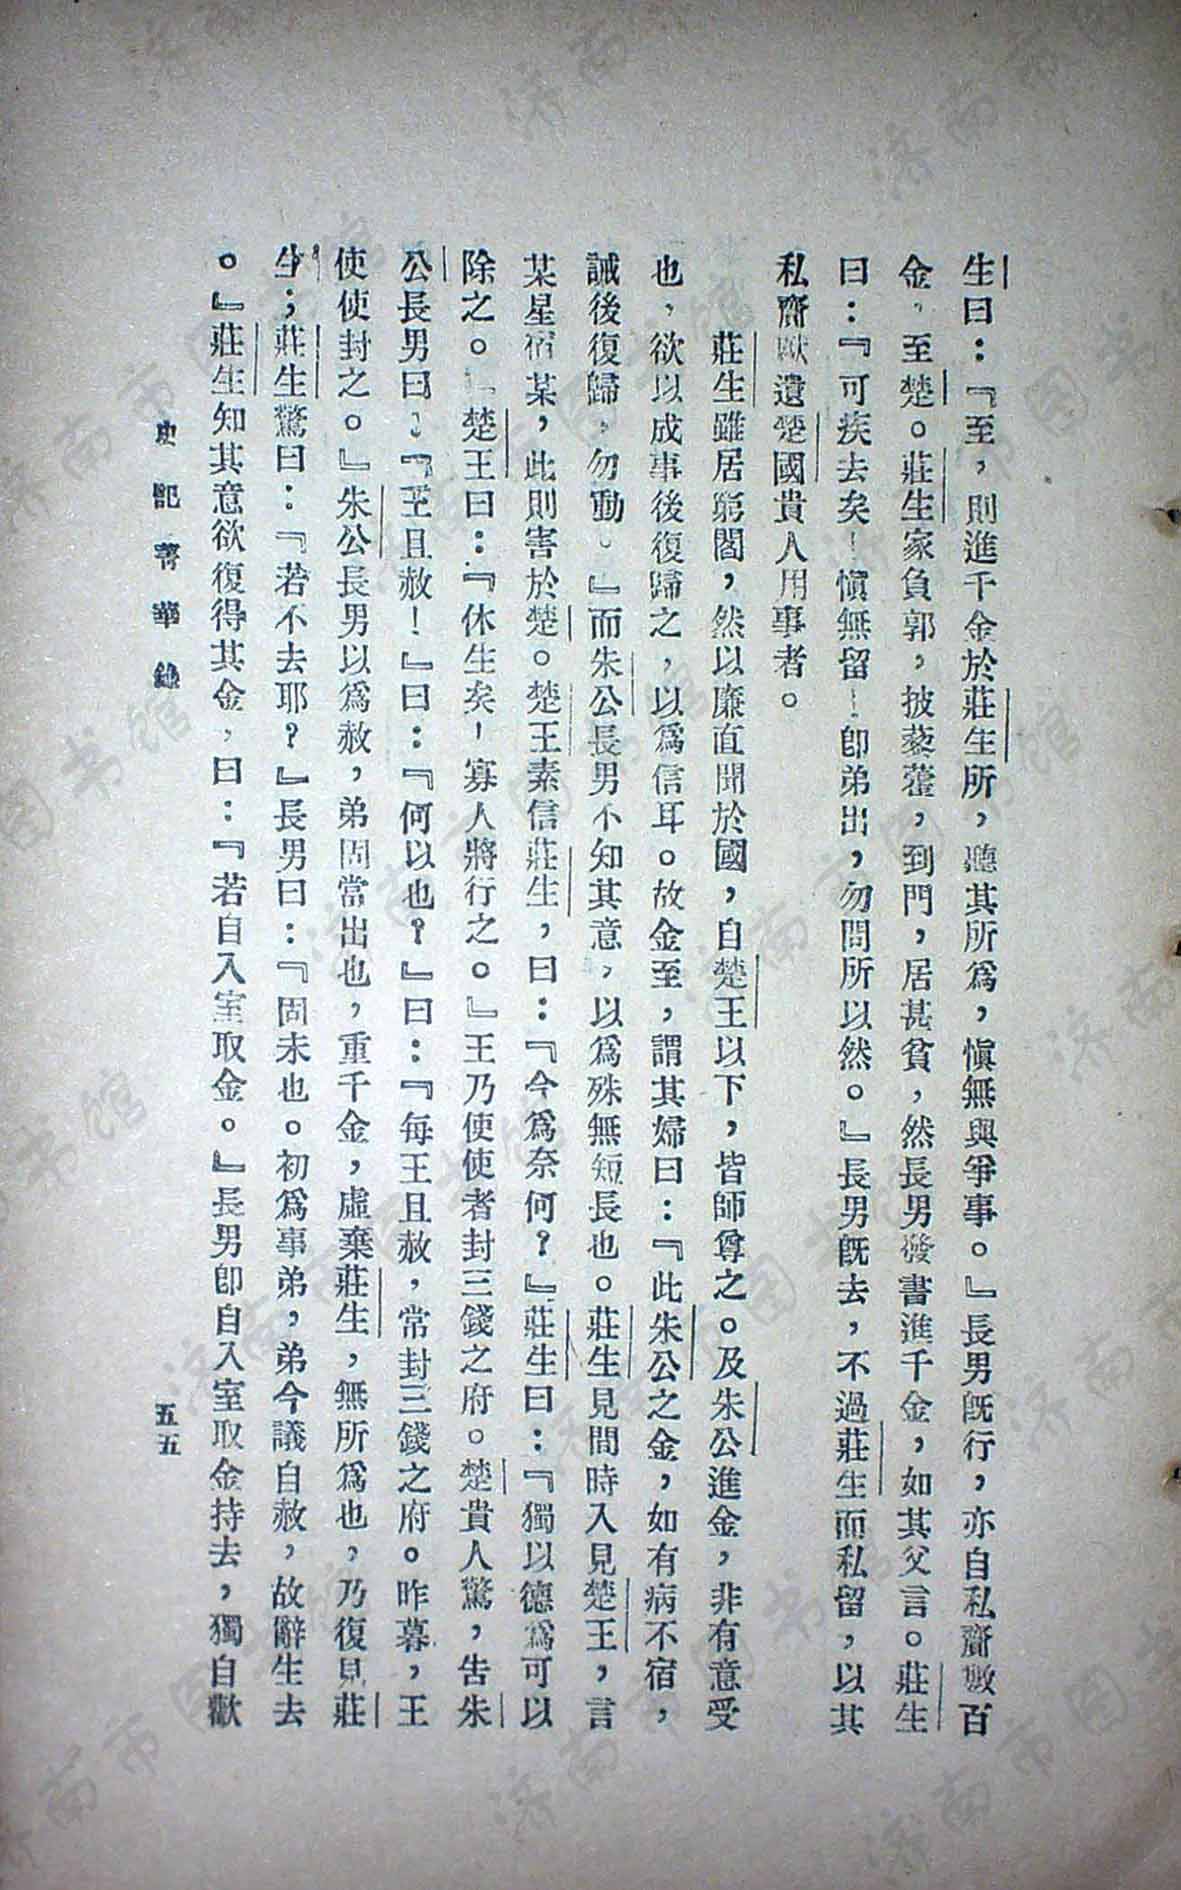 生曰：『至，則進千金於莊生所，聽其所爲，愼無與爭事。』長男旣行，亦自私齎數百
金，至楚。莊生家負郭，披藜藿，到門，居甚貧，然長男發書進千金，如其父言。莊生
曰：『可疾去矣！愼無留！卽弟出，勿問所以然。』長男旣去，不過莊生而私留，以其
私齎獻遺楚國貴人用事者。
莊生雖居窮閻，然以廉直聞於國，自楚王以下，皆師尊之。及朱公進金，非有意受
也，欲以成事後復歸之，以爲信耳。故金至，謂其婦曰：『此朱公之金，如有病不宿，
誡後復歸，勿動。』而朱公長男不知其意，以爲殊無短長也。莊生見間時入見楚王，言
某星宿某，此則害於楚。楚王素信莊生，曰：『今爲奈何？』莊生曰：『獨以德爲可以
除之。』楚王曰：『休生矣！寡人將行之。』王乃使使者封三錢之府。楚貴人驚，吿朱
公長男曰：『王且赦！』曰：『何以也？』曰：『每王且赦，常封三錢之府。昨暮，王
使使封之。』朱公長男以爲赦，弟固當出也，重千金，虛棄莊生，無所爲也，乃復見莊
生；莊生驚曰：『若不去耶？』長男曰：『固未也。初爲事弟，弟今議自赦，故辭生去
。』莊生知其意欲復得其金，曰：『若自入室取金。』長男卽自入室取金持去，獨自歡
史記菁華錄
五五
济南市图书馆